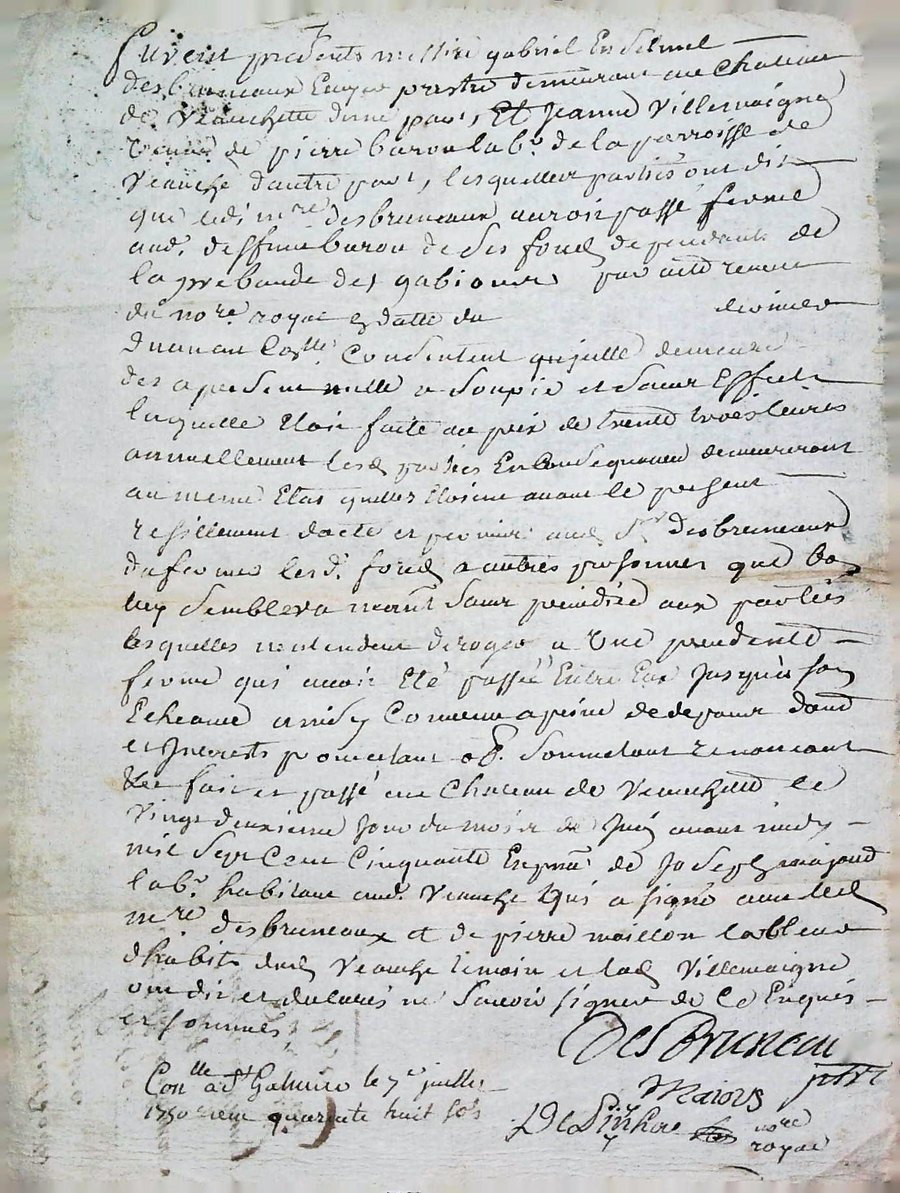 furent presents messire gabriel Enselmel
des bruneaux Ecuyer prestre demeurant au Chateau
de Veauchette dune part, Et Jeanne Villemaigne
veuve de pierre baron lab.r de la parroisse de
Veauche dautre part, lesquelles parties ont dit
que led. m.re desbruneaux auroit passé ferme
aud. deffunt baron de ses fond dependants de
la prebande des gabions par acte recent
du no.re royal en datte du dernier
Consentent quicelle demeure
des a present nulle et sans Effect
laquelle Etoit faitte au prix de trente trois livres
annuellement les d. parties En Consequance demeureront
au meme Etat quelles Etoient avant le present
resillement dacte et permis aud. S.r Desbruneaux
daffermer les d. fond a autres personnes que bon
luy Semblera neant Sans prejudice aux parties
lesquelles nentendent deroger a Une precedente
ferme qui avoit Eté passée Entre Eux Jusqu'à son
Echeance ainsy Convenu a peine de depans
et Interets promettant ob. Soumettant renoncant
&c fait et passé au Chateau de Veauchette le
vingt deuxieme Jour du mois de Juin avant midy
mil Sept Cent Cinquante En pnce de Joseph majoud
lab.r habitant aud. Veauche Qui a signé avec led.
m.re desbruneaux et de pierre maillon
dhabits dud. Veauche temoin et lad. Villemaigne
ont dit et declarés ne Scavoir signer de Ce Enquis
et sommés
DesBruneau
ptre
Con.lle a S.t Galmier le 7.e juillet
1750 quarente huit sols
no.re
royal